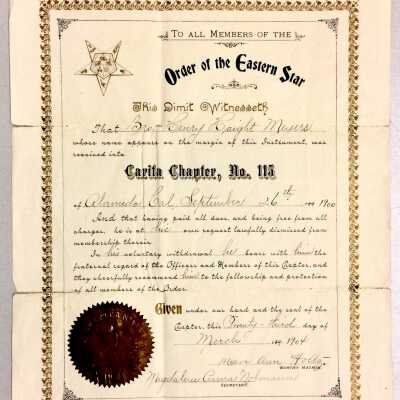 To All Members of the
Order of the Eastern Star
This Dimit Witnesseth
That Bro Henry Haight Meyers
whose name appears on the margin of this Instrument, was
received into
Carita Chapter, No. 115
of Alameda Cal September 26th 1900
And that having paid all dues and being free from all
charges, he is at his own request lawfully dismissed from
membership therein.
In his voluntary withdrawal he bears with him the
fraternal regard of the Officers and Members of this Chapter, and
they cheerfully recommend him to the fellowship and protection
of all members of the Order.
Given under our hand and the seal of the
Chapter, this Twenty-third day of
March 1904
Mary Ann
WORTHY MATRON.
SECRETARY.